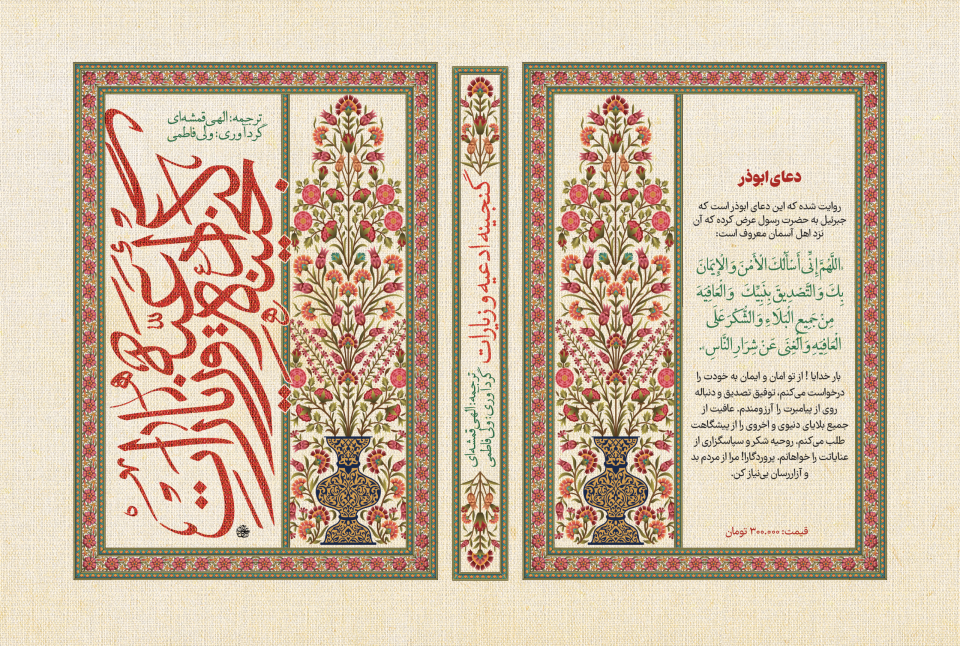 ترجمه: الهی قمشه‌ای
گردآوری: ولی فاطمی
گنجینه ادعیه و زیارات
گنجینه ادعیه و زیارات
ترجمه: الهی قمشه‌ای
گردآوری: ولی فاطمی
دعای ابوذر
روایت شده که این دعای ابوذر است که
جبرئیل به حضرت رسول عرض کرده که آن
نزد اهل آسمان معروف است:
اَللَّهُمَّ إِنِّی أَسْأَلُكَ الْأَمْنَ وَ الْإِیمَانَ
بِكَ وَ التَّصْدِیقَ بِنَبِیِّكَ وَ الْعَافِیَهَ
مِنْ جَمِیعِ الْبَلَاءِ وَ الشُّكْرَ عَلَی
الْعَافِیَهِ وَ الْغِنَی عَنْ شِرَارِ النَّاسِ.
بار خدایا ! از تو امان و ایمان به خودت را
درخواست می‌کنم، توفیق تصدیق و دنباله
روی از پیامبرت را آرزومندم. عافیت از
جمیع بلایای دنیوی و اخروی را از پیشگاهت
طلب می‌کنم. روحیه شکر و سپاسگزاری از
عنایاتت را خواهانم. پروردگارا! مرا از مردم بد
و آزاررسان بی‌نیاز کن.
قیمت: ۳۰۰.۰۰۰ تومان